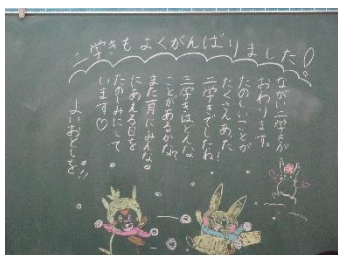 二学きもよくがんばりました!
ながい二学きが
おわります。
たのしいことが
たくさんあった
二学きでしたね!
三学きはどんな
ことがあるかな?
また一月にみんな
にあえる日を
たのしみにして
います♡
よいおとしを!!